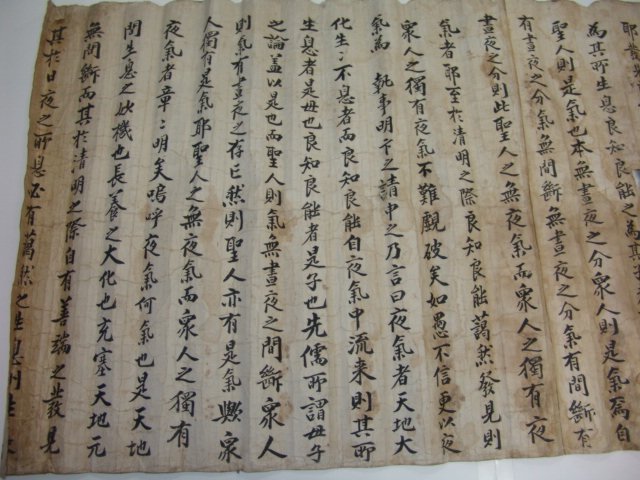 為其所生息良知良能之為其
聖人則是氣也本無晝夜之分衆人則是氣為自
有晝夜之分氣無間斷無晝夜之分氣有間斷有
晝夜之分則此聖人之無夜氣而衆人之獨有夜
氣者耶至於清明之際良知良能藹然發見則
衆人之獨有夜氣不難覰破矣如愚不信更以夜
氣為 執事明下之請申之乃言曰夜氣者天地大
化生生不息者而良知良能自夜氣中流来則其所
生息者是母也良知良能者是子也先儒所謂母子
之論盖以是也而聖人則氣無晝夜之間斷衆人
則氣有晝夜之存亡然則聖人亦有是氣歟衆
人獨有是氣耶聖人之無夜氣而衆人之獨有
夜氣者章章明矣嗚呼夜氣何氣也是天地
間生息之妙機也長養之大化也充塞天地元
無間斷而其於清明之際自有善端之發見
其於日夜之所息必有藹然之生息則